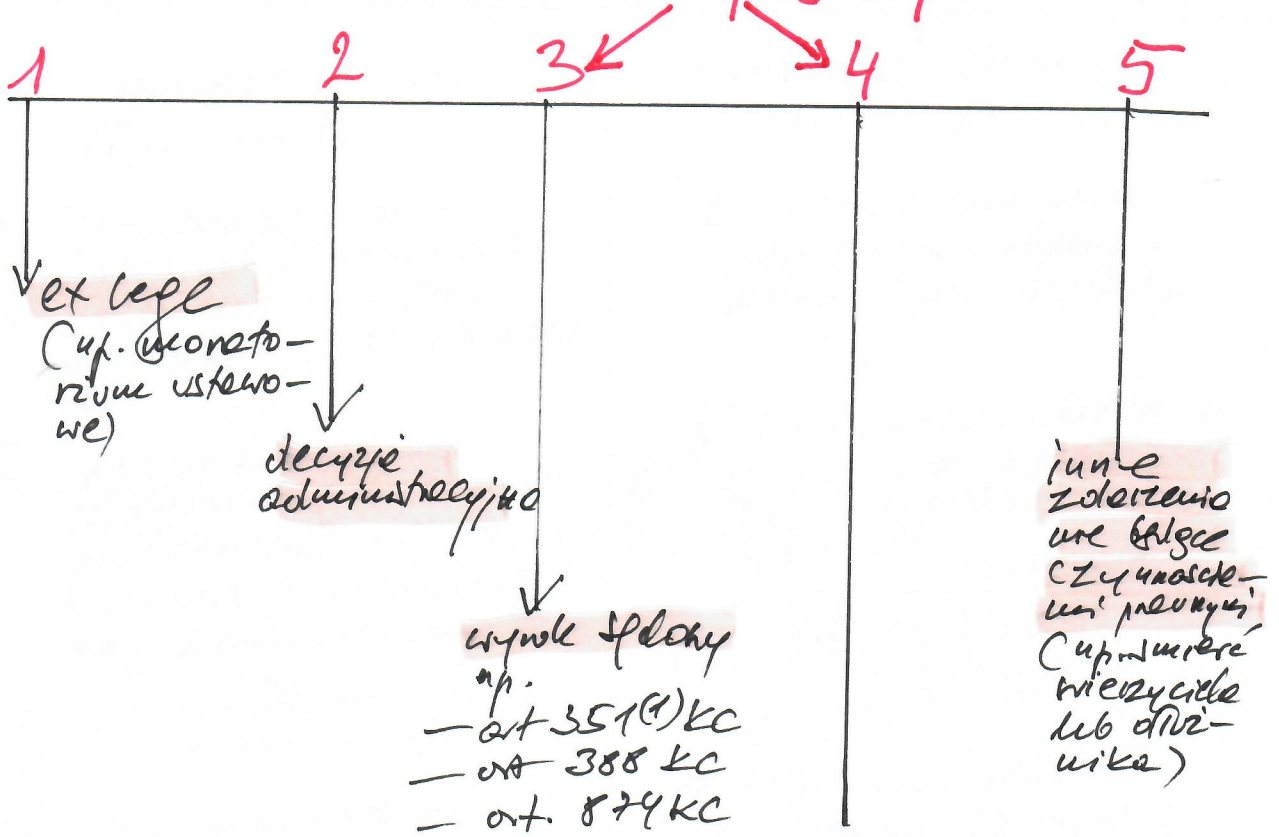 1
2
3
4
5
ex lege
(np. morato-
rium ustawo-
we)
decyzje
administracyjne
wyrok sądowy
np.
- art 351(1) KC
- art 388 KC
- art. 874 KC
inne
zdarzenia
nie będące
czynnościa-
mi prawnymi
(np. śmierć
wierzyciela
lub dłuż-
nika)